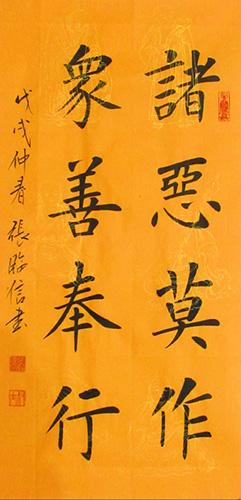 諸惡莫作
眾善奉行
戊戌仲春張臨信書